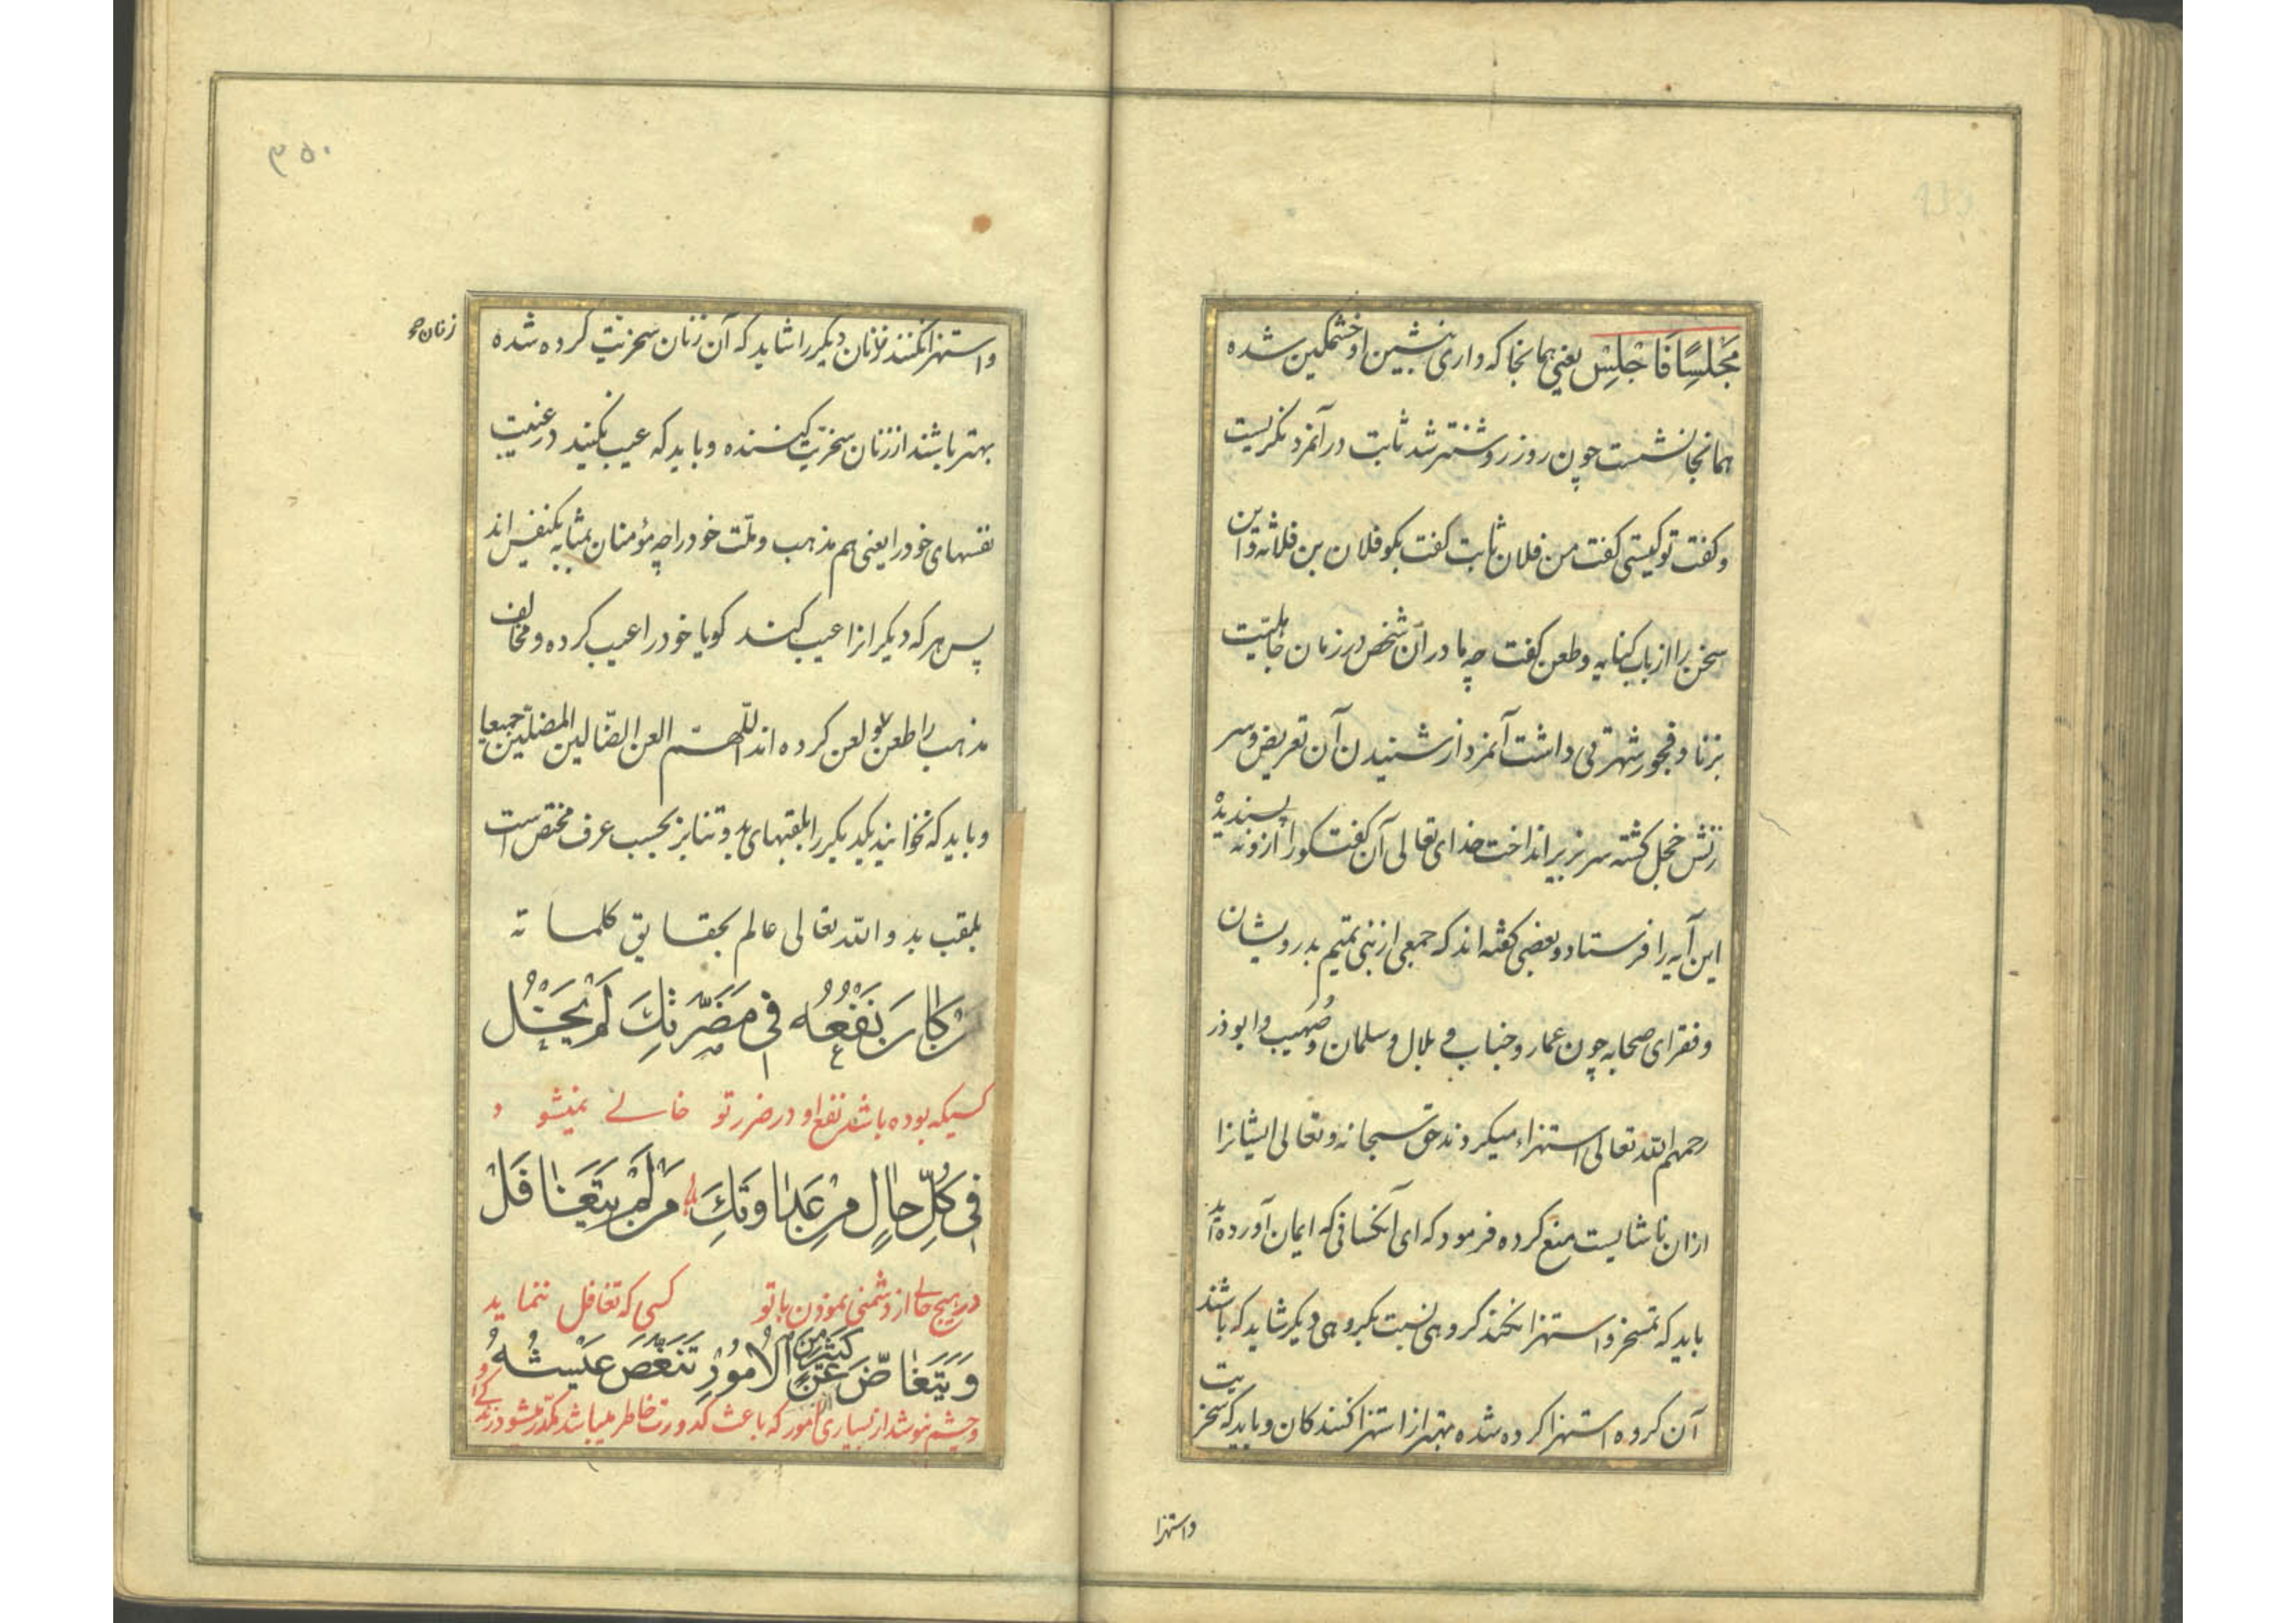 مَجْلِسًا فَاجْلِسْ یعنی همانجا که داری بنشین او خشمگین شده
همانجا نشست چون روز روشنتر شد ثابت در آنمرد نکریست
و کفت تو کیستی کفت من فلان ثابت کفت بکو فلان بن فلانه و این
سخن را از باب کنایه و طعن کفت چه مادر آن شخص در زمان جاهلیت
بزنا و فجور شهرتی داشت آنمرد از شنیدن آن تعریض و سر
زنش خجل کشته سر بزیر انداخت خدای تعالی آن کفتکو را از و نه پسندیده
این آیه را فرستاد و بعضی کفته اند که جمعی از بنی تمیم بدرویشان
و فقرای صحابه چون عمار و خباب و بلال و سلمان و صُهیب و ابوذر
رحمهم الله تعالی استهزاء میکردند حق سبحانه و تعالی ایشانرا
ازان ناشایست منع کرده فرمود که ای آنکسانی که ایمان آورده اند
باید که تمسخر و استهزا نکند کروهی نسبت بکروهی دیکر شاید که باشند
آن کروه استهزا کرده شده بهتر از استهزا کنندکان و باید که سخریت
و استهزا
۳۵۰
و استهزا نکنند زنان دیکر را شاید که آن زنان سخریت کرده شده
زنان صح
بهتر باشند از زنان سخریت کننده و باید که عیب نکنید در غیبت
نفسهای خود را یعنی هم مذهب و ملت خود را چه مؤمنان بمثابه یکنفس اند
پس هر که دیکرانرا عیب کند کویا خود را عیب کرده و مخالف
مذهب را طعن و لعن کرده اند اللّهمّ العن الضّالین المضلّین جمیعا
و باید که نخوانید یکدیکر را بلقبهای بد و تنابز بحسب عرف مختص است
بلقب بد والله تعالی عالم بحقایق کلماته
مَنْ كَانَ نَفْعُهُ فِی مَضَرَّتِكَ لَمْ یَخْلُ
کسیکه بوده باشد نفع او در ضرر تو خالی نمیشود
فِی كُلِّ حَالٍ مِنْ عَدَاوَتِكَ مَنْ لَمْ یَتَغَافَلْ
در هیچ حالی از دشمنی نمودن با تو کسی که تغافل ننماید
وَ یَتَغَاضَّ عَنْ كَثیرٍ مِنَ الْاُمُورِ تَنَغَّصَ عَیْشُهُ
و چشم نپوشد از بسیاری امور که باعث کدورت خاطر میباشد مکدر میشود زندکی او